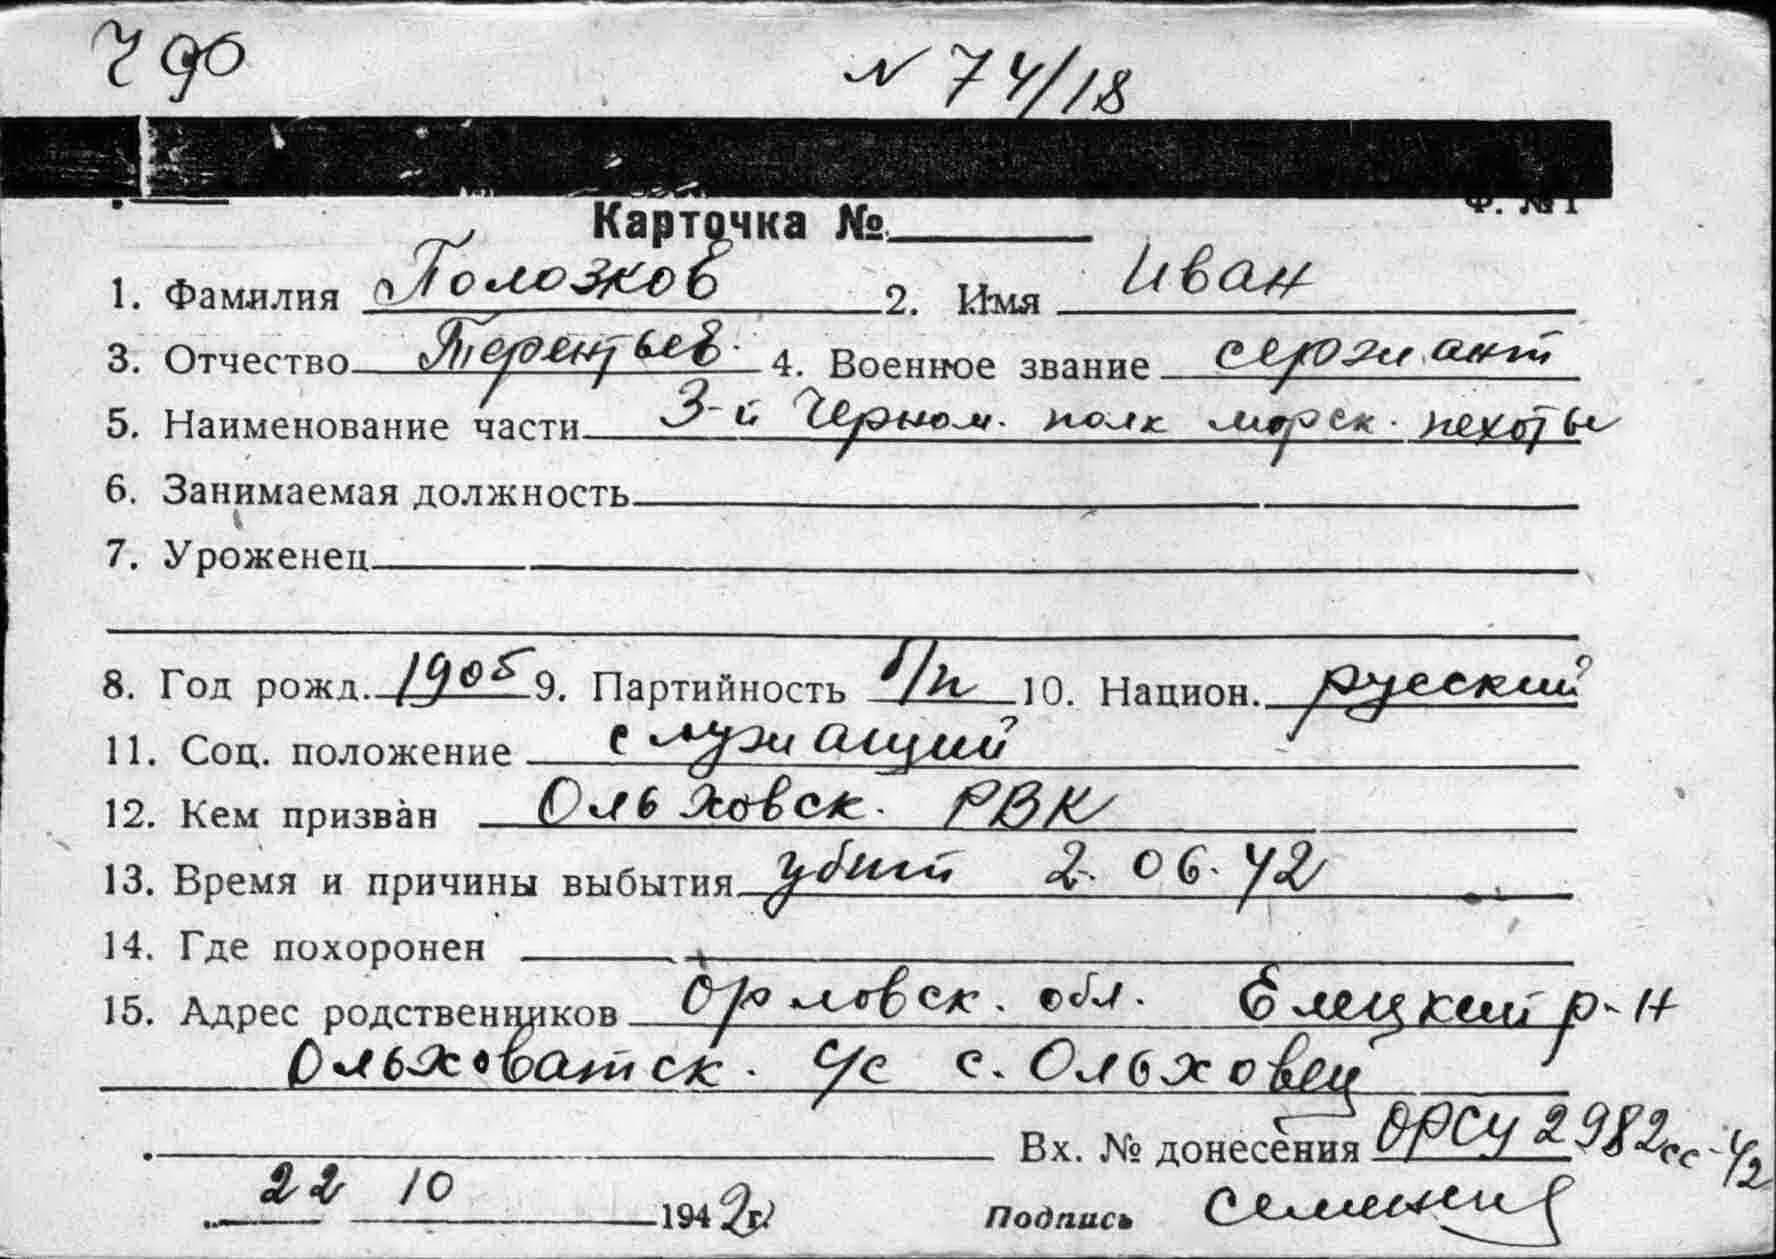 ЧФ
N 74/18
Ф. № 1
Карточка №
1. Фамилия Полозков 2. Имя Иван
3. Отчество Терентьев. 4. Военное звание сержант
5. Наименование части 3-й Черном. полк морск. пехоты
6. Занимаемая должность
7. Уроженец
8. Год рожд. 1905 9. Партийность б/п 10. Национ. русский
11. Соц. положение служащий
12. Кем призван Ольховск. РВК
13. Время и причины выбытия убит 2.06.42
14. Где похоронен
15. Адрес родственников Орловск. обл. Елецкий р-н
Ольховатск. с/с с. Ольховец
Вх. № донесения ОРСУ 2982сс-42
22 10 1942г. Подпись